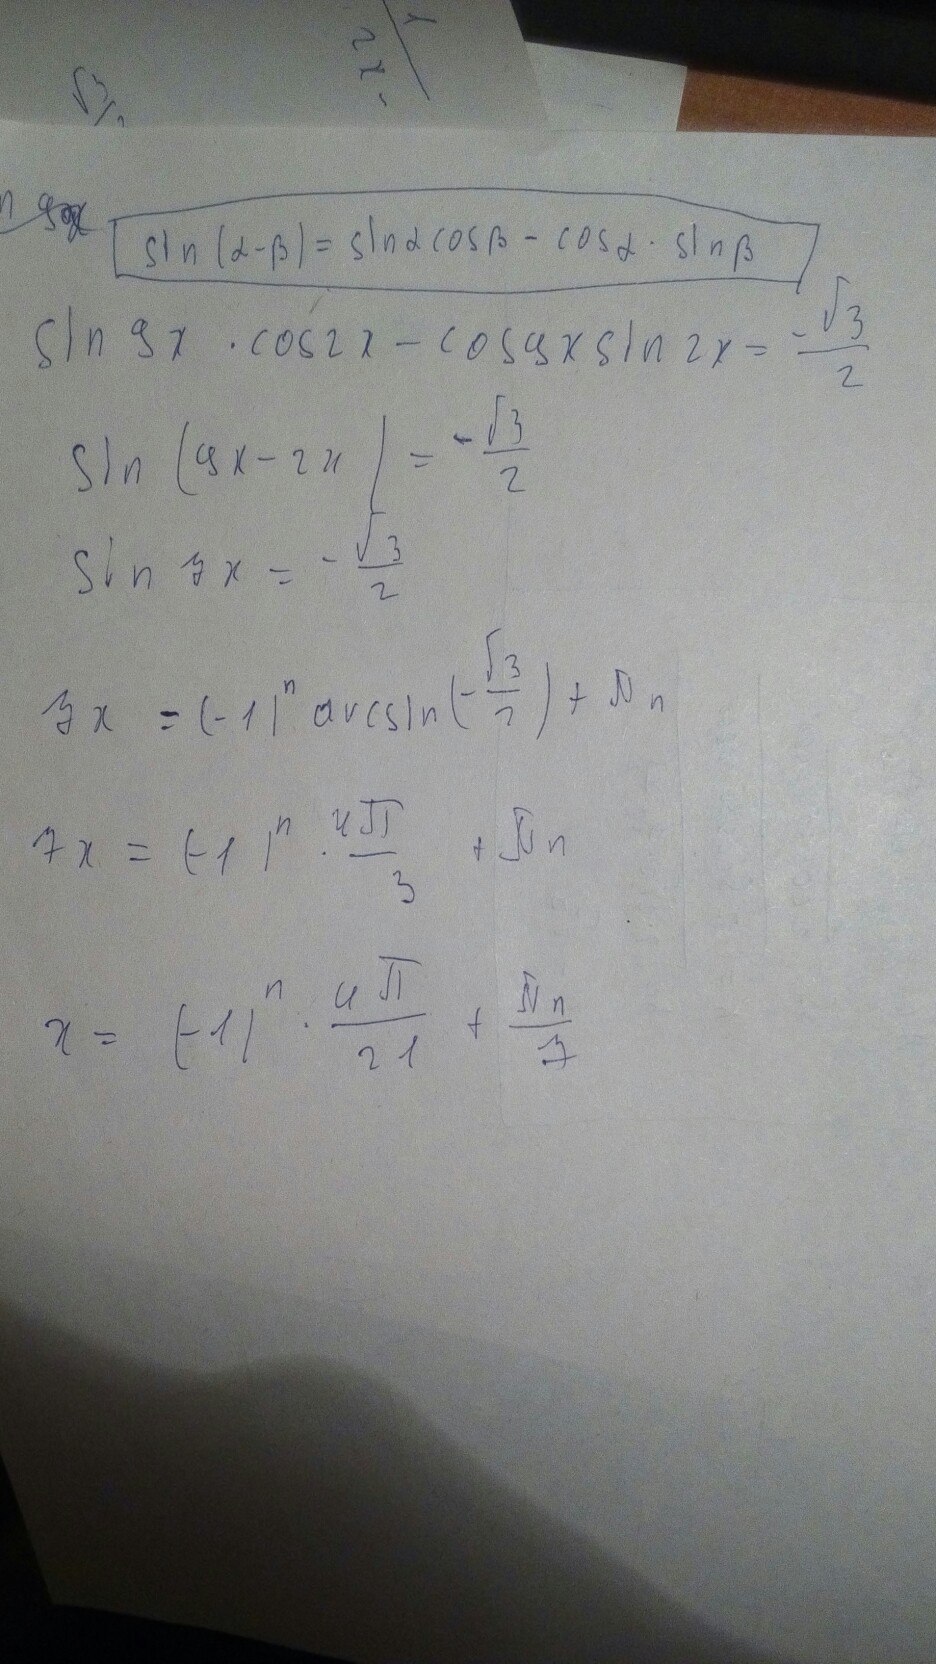 sin(α-β)=sinαcosβ-cosα·sinβ
sin 9x · cos2x - cos9x sin 2x = -√3/2
sin (9x-2x) = -√3/2
sin 7x = -√3/2
7x = (-1)ⁿ arcsin(-√3/2) + πn
7x = (-1)ⁿ · 4π/3 + πn
x = (-1)ⁿ · 4π/21 + πn/7